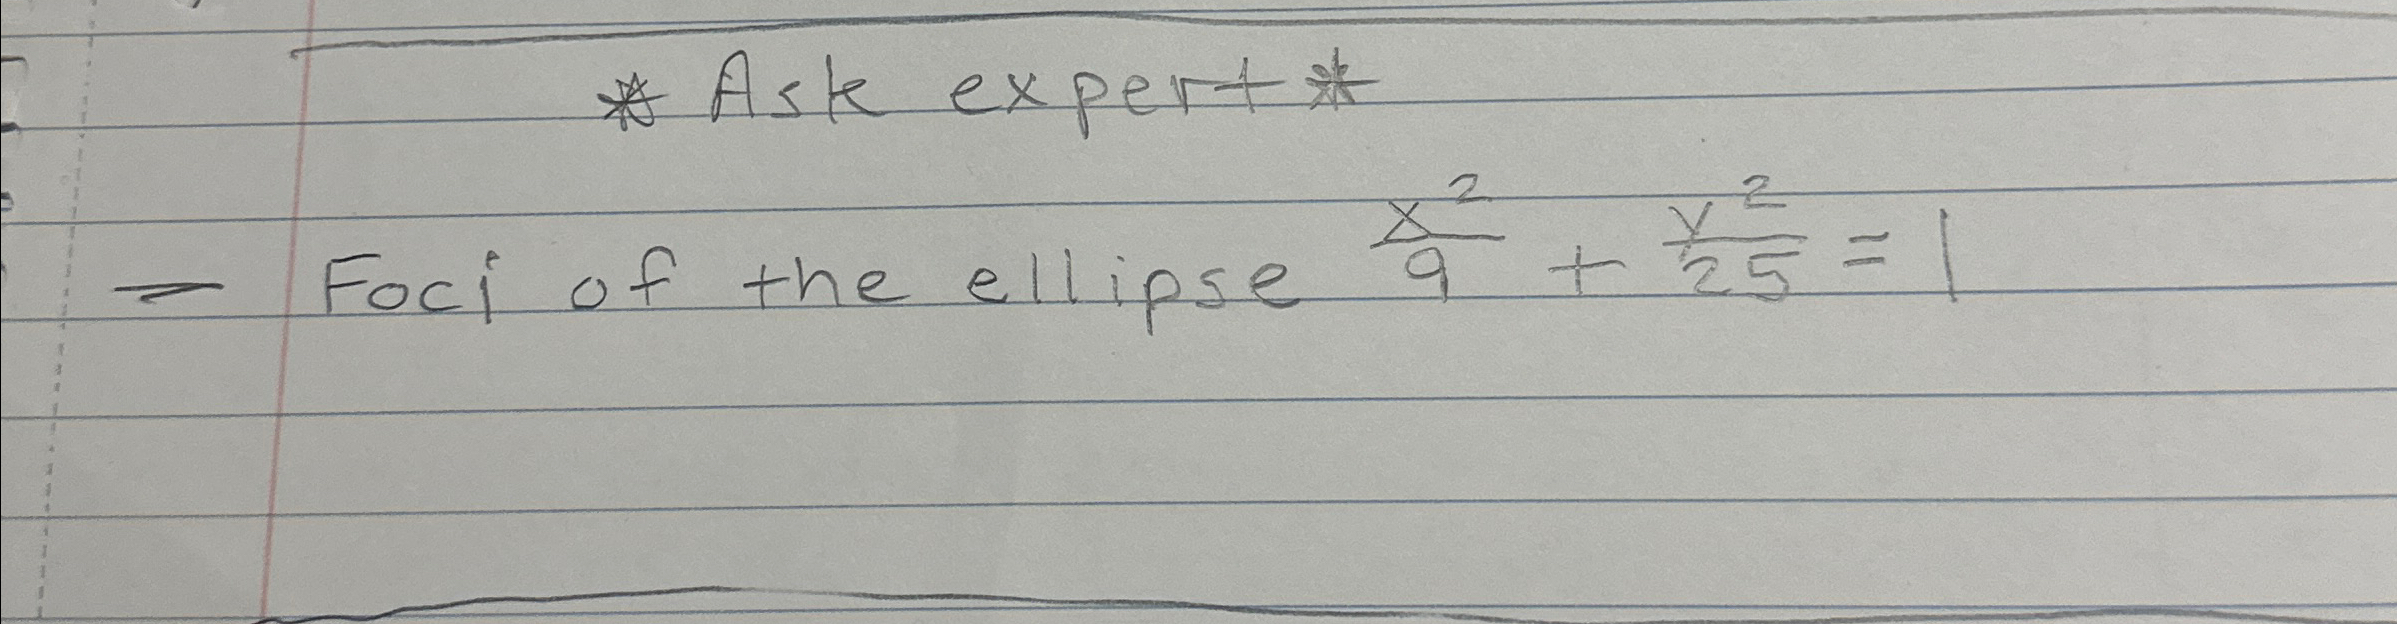 * Ask expert *
— Foci of the ellipse x²/9 + y²/25 = 1